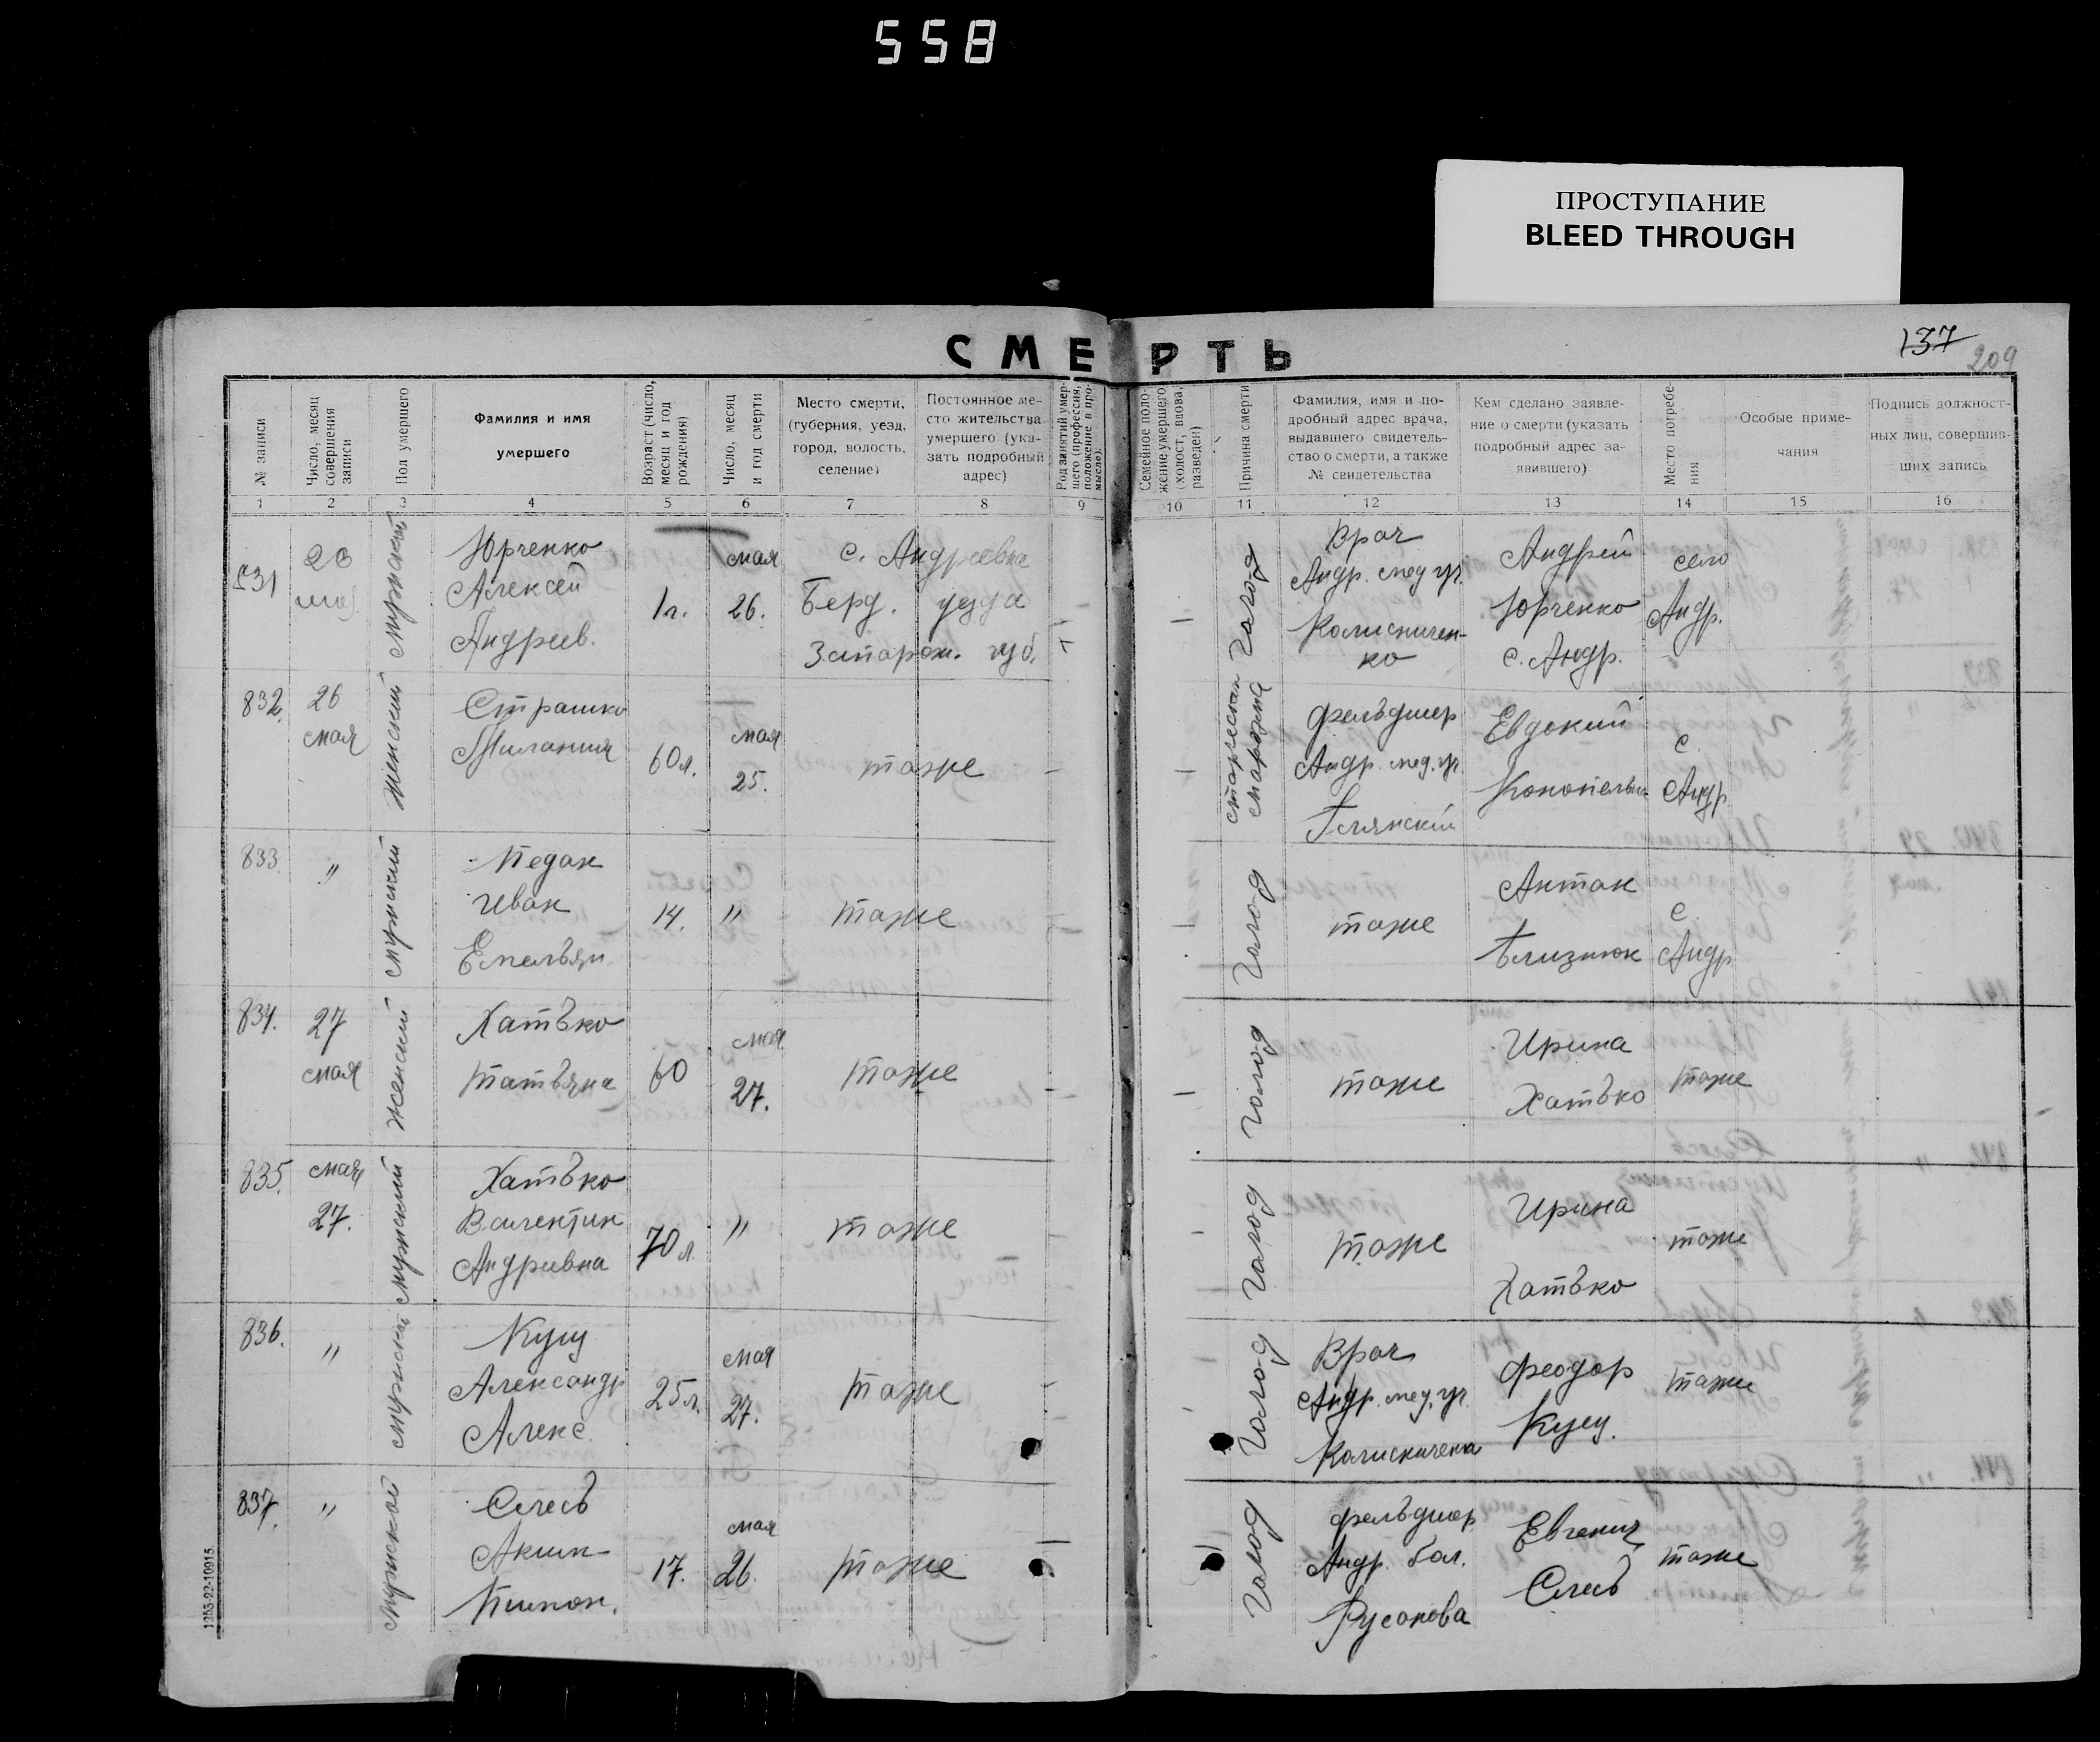 558
ПРОСТУПАНИЕ
BLEED THROUGH
СМЕРТЬ
137
209
№ записи
Число, месяц совершения записи
Пол умершего
Фамилия и имя
умершего
Возраст (число, месяц и год рождения)
Число, месяц и год смерти
Место смерти,
(губерния, уезд,
город, волость,
селение)
Постоянное ме-
сто жительства
умершего (ука-
зать подробный
адрес)
Род занятий умер-
шего (профессия,
положение в про-
мысле).
Семейное поло-
жение умершего
(холост, вдова,
разведен)
Причина смерти
Фамилия, имя и по-
дробный адрес врача,
выдавшего свидетель-
ство о смерти, а также
№ свидетельства
Кем сделано заявле-
ние о смерти (указать
подробный адрес за-
явившего)
Место погребе-
ния
Особые приме-
чания
Подпись должност-
ных лиц, совершив-
ших запись
1 2 3 4 5 6 7 8 9 10 11 12 13 14 15 16
831
мужской
Юрченко
Алексей
Андреев.
1 г.
мая
26.
с. Андреевка
Берд. уезда
Запорож. губ.
голод
Врач
Андр. мед уч.
Колисничен-
ко
Андрей
Юрченко
с. Андр.
село
Андр.
832.
26
мая
женский
Страшко
Милания
60 л.
мая
25.
тоже
фельдшер
Андр. мед. уч.
Евдокий
с
Андр
833.
"
мужский
Педан
Иван
Емельян.
14.
"
тоже
голод
тоже
Антон
Близнюк
с.
Андр
834.
27
мая
женский
Хатько
Татьяна
60
мая
27.
тоже
голод
тоже
Ирина
Хатько
тоже
835.
мая
27.
мужский
Хатько
Валентин
Андриевна
70 л.
"
тоже
голод
тоже
Ирина
Хатько
тоже
836.
"
мужский
Куцу
Александр
Алекс.
25 л.
мая
27.
тоже
голод
Врач
Андр. мед. уч.
Феодор
Куцу.
тоже
837.
"
мужской
Слесь
Аким
17.
мая
26.
тоже
голод
фельдшер
Андр. бол.
Русанова
Евгений
Слесь
тоже
1253-22-10915